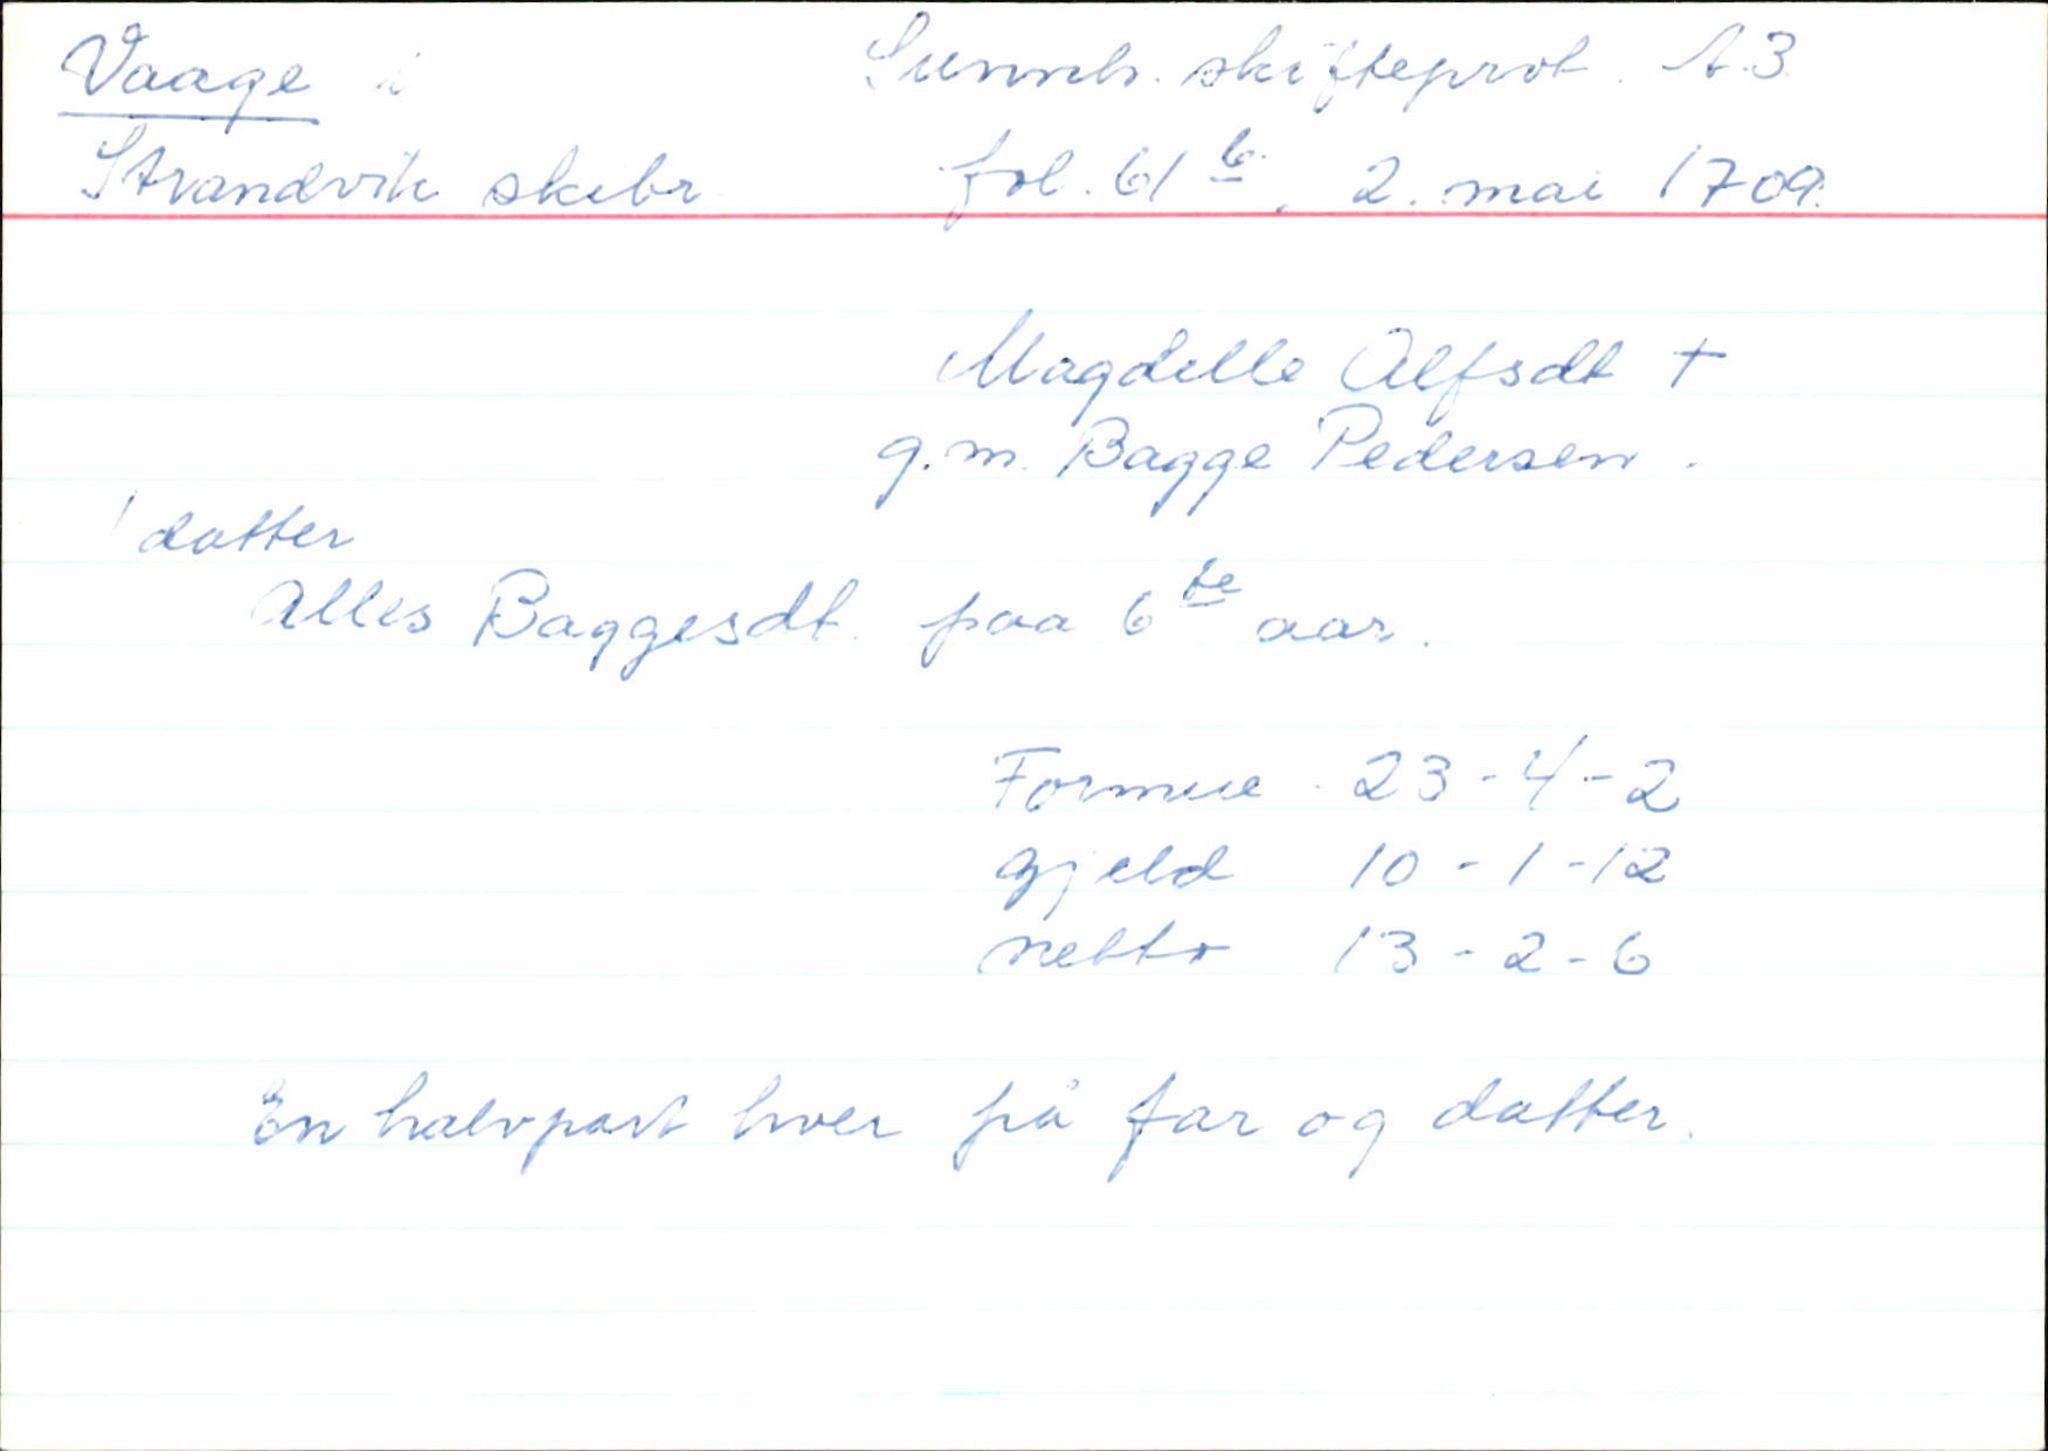 Vaage i
Strandvik skibr.
Sunnh. skifteprot. A.3.
fol. 61 b. 2. mai 1709.
Magdelle Alfsdt †
g.m. Bagge Pedersen.
1 datter
Alles Baggesdt. paa 6te aar.
Formue 23-4-2
gjeld 10-1-12
netto 13-2-6
En halvpart hver på far og datter.